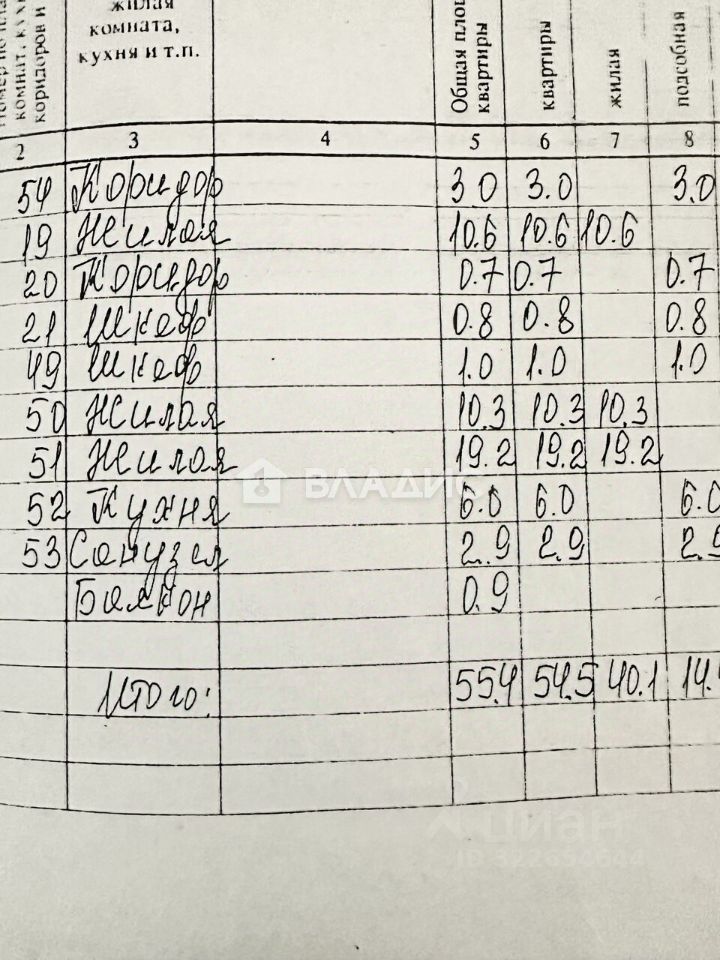 Номер по пла
комнат, кухн
коридоров и
жилая
комната,
кухня и т.п.
Общая пло
квартиры
квартиры
жилая
подсобная
2 3 4 5 6 7 8
54 Коридор 3.0 3.0 3.0
19 Жилая 10.6 10.6 10.6
20 Коридор 0.7 0.7 0.7
21 Шкаф 0.8 0.8 0.8
49 Шкаф 1.0 1.0 1.0
50 Жилая 10.3 10.3 10.3
51 Жилая 19.2 19.2 19.2
ВЛАДИС
52 Кухня 6.0 6.0 6.0
53 Санузел 2.9 2.9 2.9
Балкон 0.9
Итого: 55.4 54.5 40.1 14.4
циан